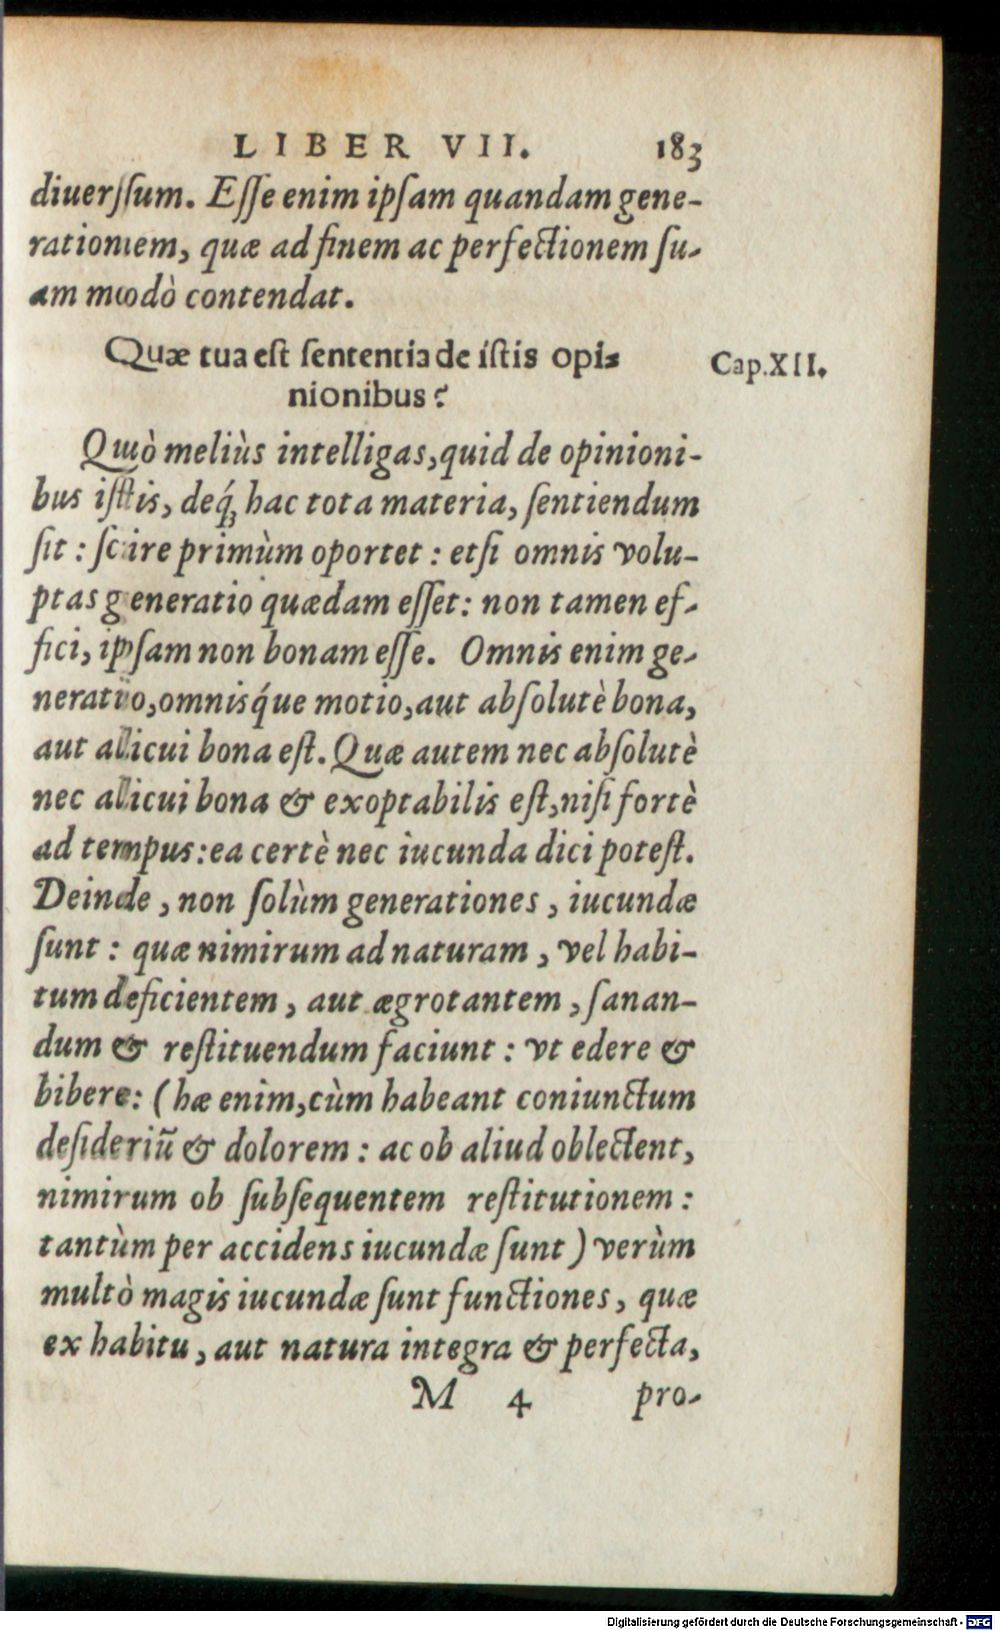 LIBER VII. 183
diuerſsum. Eſſe enim ipſam quandam gene-
rationem, quæ ad finem ac perfectionem ſu-
am modò contendat.
Quæ tua eſt ſententia de iſtis opi-
nionibus?
Cap. XII.
Quò meliùs intelligas, quid de opinioni-
bus iſtis, deq́; hac tota materia, ſentiendum
ſit: ſcire primùm oportet: etſi omnis volu-
ptas generatio quædam eſſet: non tamen ef-
fici, ipſam non bonam eſſe. Omnis enim ge-
neratio, omnisq́ue motio, aut abſolutè bona,
aut alicui bona eſt. Quæ autem nec abſolutè
nec alicui bona & exoptabilis eſt, niſi fortè
ad tempus: ea certè nec iucunda dici poteſt.
Deinde, non ſolùm generationes, iucundæ
ſunt: quæ nimirum ad naturam, vel habi-
tum deficientem, aut ægrotantem, ſanan-
dum & reſtituendum faciunt: vt edere &
bibere: (hæ enim, cùm habeant coniunctum
deſideriū & dolorem: ac ob aliud oblectent,
nimirum ob ſubſequentem reſtitutionem:
tantùm per accidens iucundæ ſunt) verùm
multò magis iucundæ ſunt functiones, quæ
ex habitu, aut natura integra & perfecta,
M 4 pro-
Digitalisierung gefördert durch die Deutsche Forschungsgemeinschaft - DFG